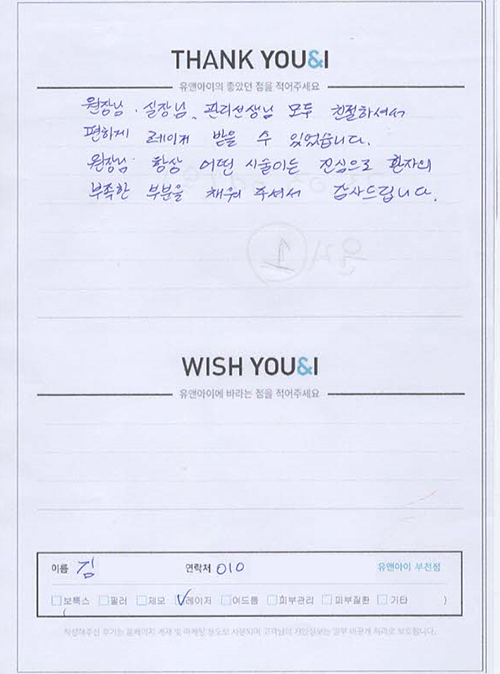 THANK YOU&I
유앤아이의 좋았던 점을 적어주세요
원장님. 실장님. 관리선생님 모두 친절하셔서
편하게 레이저 받을 수 있었습니다.
원장님. 항상 어떤 시술이든 진심으로 환자의
부족한 부분을 채워 주셔서 감사드립니다.
WISH YOU&I
유앤아이에 바라는 점을 적어주세요
이름 김 연락처 010 유앤아이 부천점
보톡스 필러 제모 레이저 여드름 피부관리 피부질환 기타 )
(
작성해주신 후기는 홈페이지 게재 및 마케팅 용도로 사용되며 고객님의 개인정보는 일부 비공개 처리로 보호됩니다.